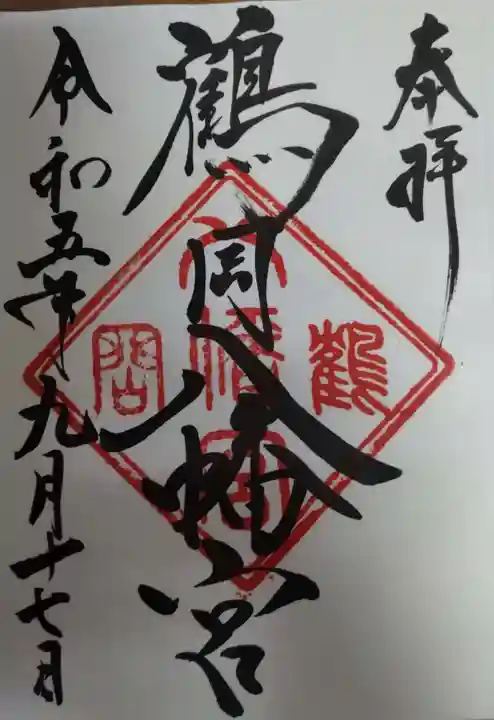 奉拝
鶴岡八幡宮
鶴
八幡宮
岡
令和五年九月十七日